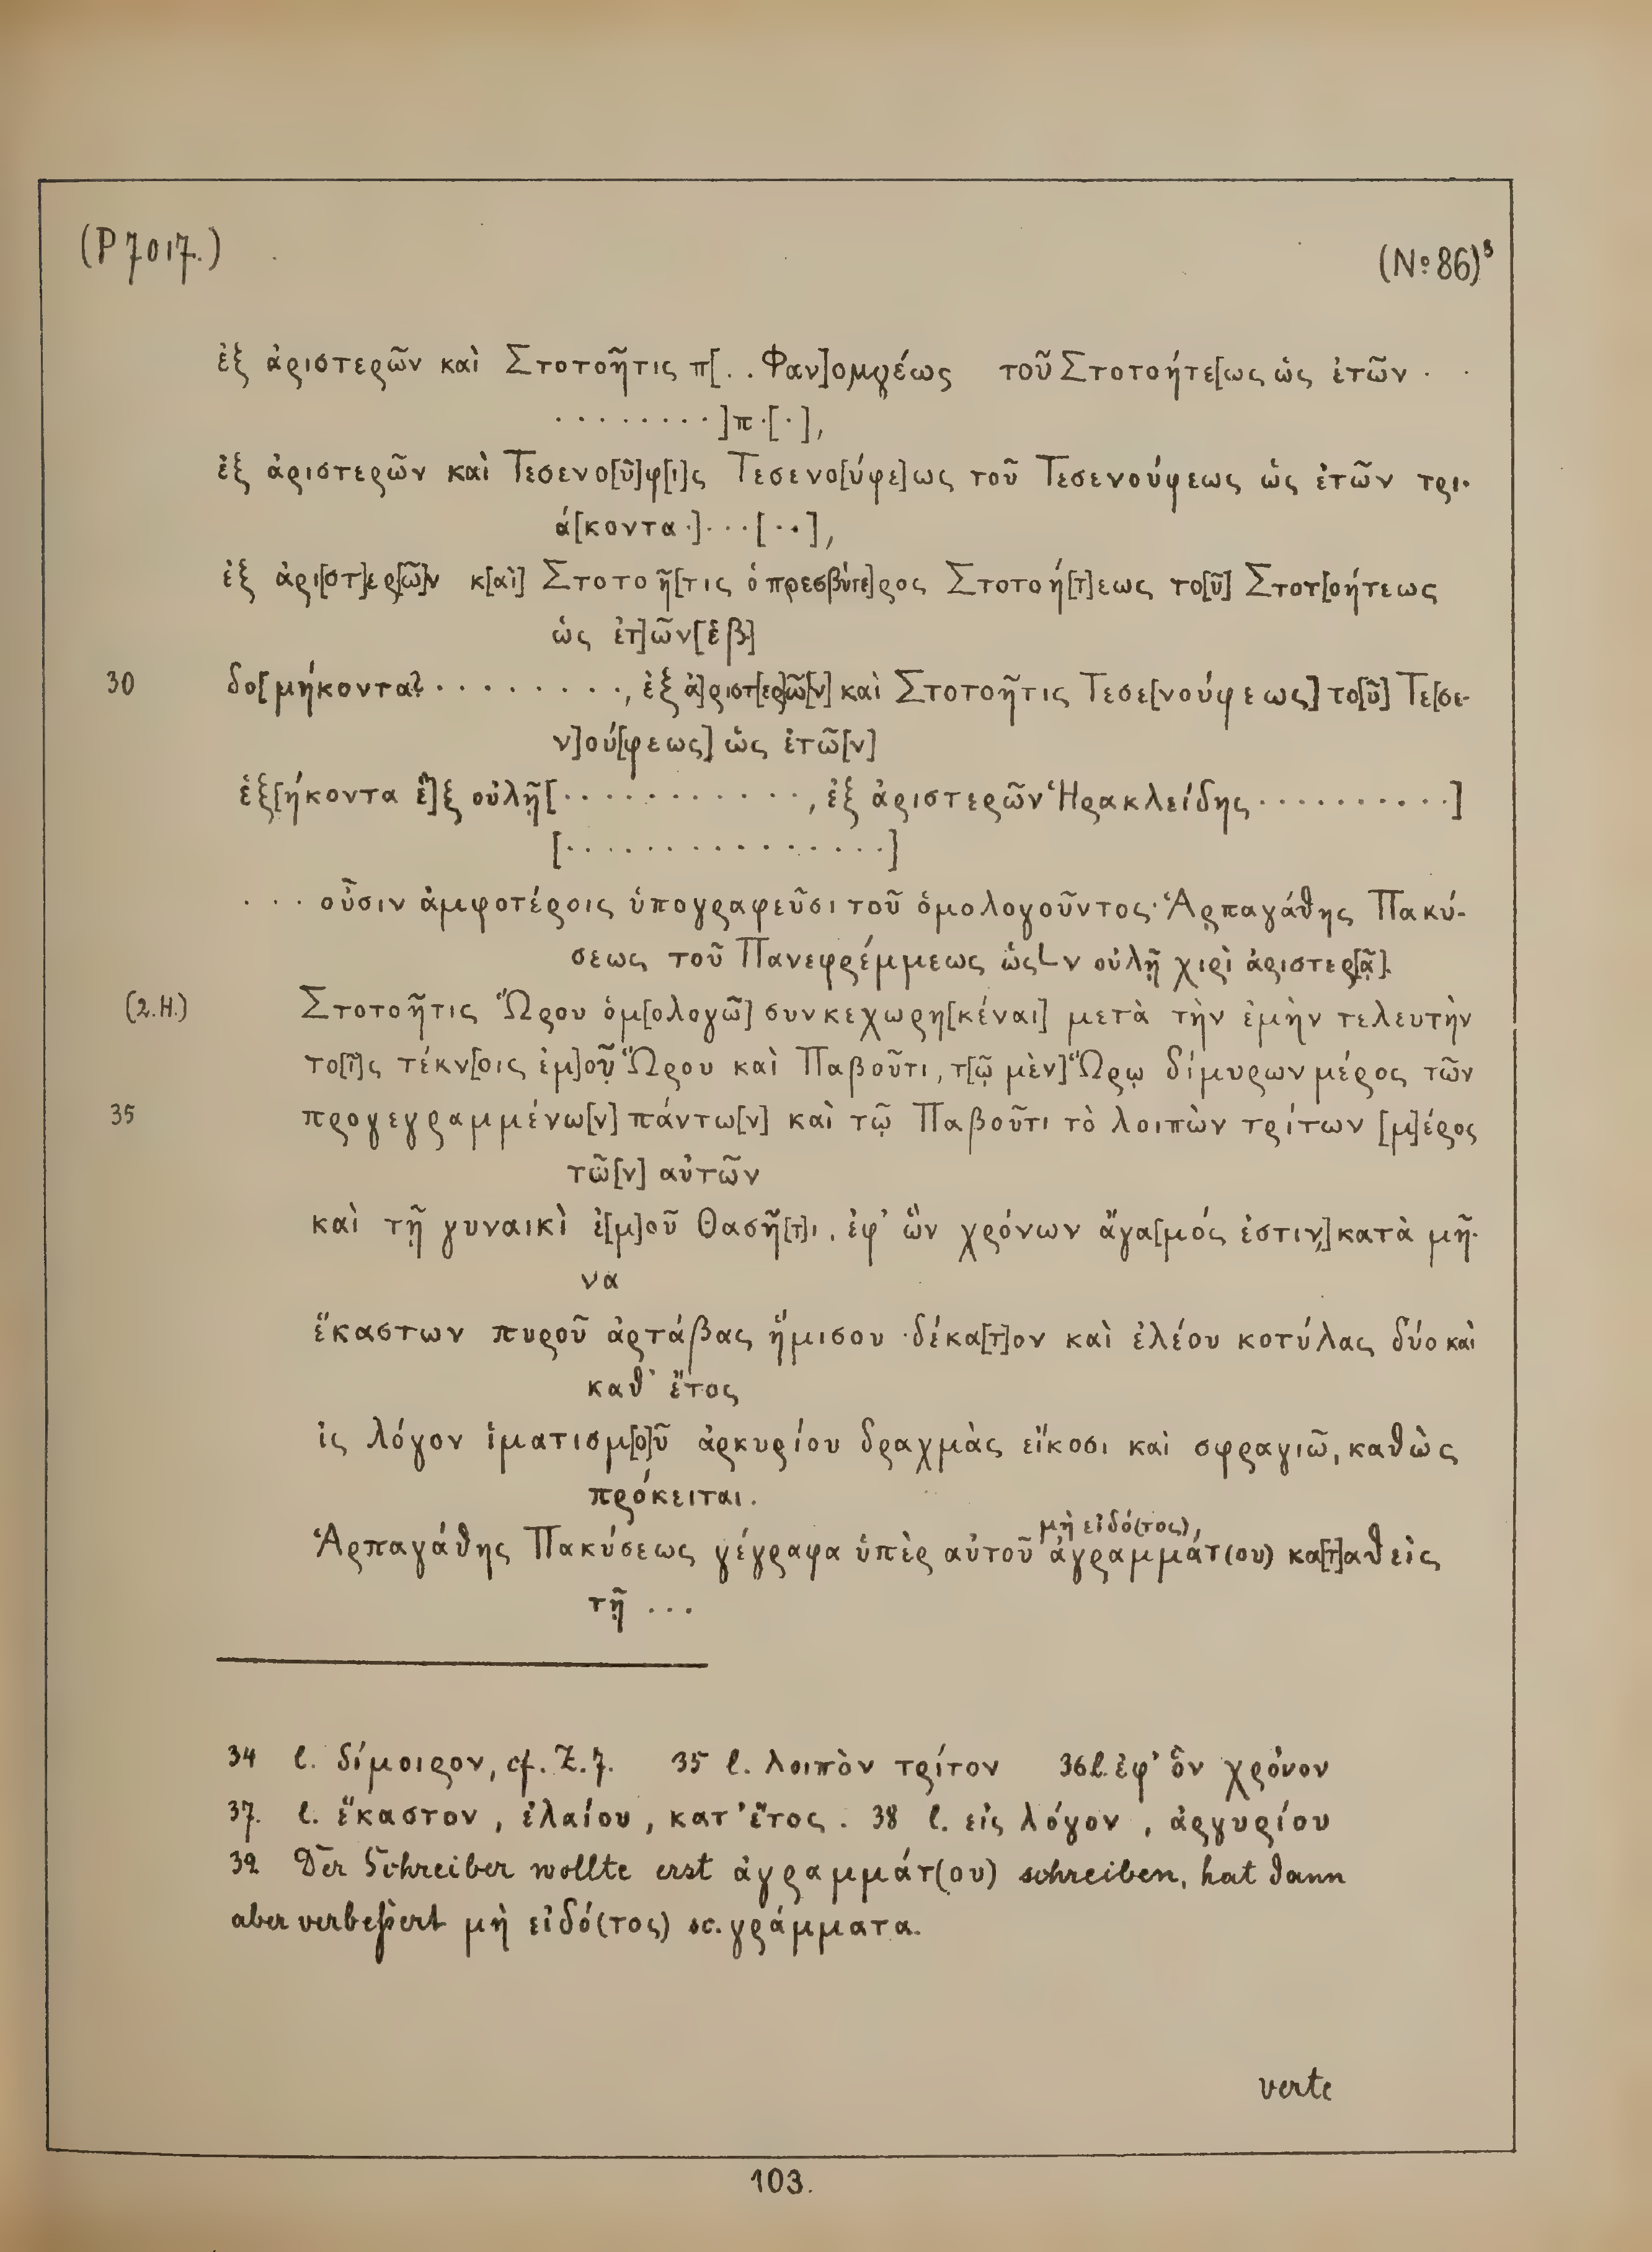 (P 7017.)
(No 86)³
ἐξ ἀριστερῶν καὶ Στοτοῆτις π[. . Φαν]ομγέως τοῦ Στοτοήτε[ως ὡς ἐτῶν · ·
· · · · · · · ·]π·[·],
ἐξ ἀριστερῶν καὶ Τεσενο[ῦ]φ[ι]ς Τεσενο[ύφε]ως τοῦ Τεσενούφεως ὡς ἐτῶν τρι-
ά[κοντα ·]· · ·[· ·],
ἐξ ἀρι[στ]ερ[ῶ]ν κ[αὶ] Στοτοῆ[τις ὁ πρεσβύτε]ρος Στοτοή[τ]εως το[ῦ] Στοτ[οήτεως
ὡς ἐτ]ῶν[ἑβ]
30 δο[μήκοντα? · · · · · · · · ·, ἐξ ἀ]ριστ[ερ]ῶ[ν] καὶ Στοτοῆτις Τεσε[νούφεως] το[ῦ] Τε[σε-
ν]ού[φεως] ὡς ἐτῶ[ν]
ἑξ[ήκοντα ἓ]ξ οὐλῆ[· · · · · · · · · · · ·, ἐξ ἀριστερῶν Ἡρακλείδης · · · · · · · · · ·]
[· · · · · · · · · · · · · · ·]
· · · οὖσιν ἀμφοτέροις ὑπογραφεῦσι τοῦ ὁμολογοῦντος· Ἁρπαγάθης Πακύ-
σεως τοῦ Πανεφρέμμεως ὡς L ν οὐλῆ χιρὶ ἀριστερ[ᾷ].
(2.H.) Στοτοῆτις Ὥρου ὁμ[ολογῶ] συνκεχωρη[κέναι] μετὰ τὴν ἐμὴν τελευτὴν
το[ῖ]ς τέκν[οις ἐμ]οῦ Ὥρου καὶ Παβοῦτι, τ[ῷ μὲν] Ὥρῳ δίμυρων μέρος τῶν
35 προγεγραμμένω[ν] πάντω[ν] καὶ τῷ Παβοῦτι τὸ λοιπὼν τρίτων [μ]έρος
τῶ[ν] αὐτῶν
καὶ τῇ γυναικὶ ἐ[μ]οῦ Θασῆ[τ]ι, ἐφ᾽ ὧν χρόνων ἄγα[μός ἐστιν,] κατὰ μῆ-
να
ἕκαστων πυροῦ ἀρτάβας ἥμισου δέκα[τ]ον καὶ ἐλέου κοτύλας δύο καὶ
καθ᾽ ἔτος
ἰς λόγον ἱματισμ[ο]ῦ ἀρκυρίου δραχμὰς εἴκοσι καὶ σφραγιῶ, καθὼς
πρόκειται.
μὴ εἰδό(τος),
Ἁρπαγάθης Πακύσεως γέγραφα ὑπὲρ αὐτοῦ ἀγραμμάτ(ου) κα[τ]αθεὶς
τῇ ...
34 l. δίμοιρον, cf. Z. 7. 35 l. λοιπὸν τρίτον 36 l. ἐφ᾽ ὃν χρόνον
37. l. ἕκαστον, ἐλαίου, κατ᾽ ἔτος. 38 l. εἰς λόγον, ἀργυρίου
39 Der Schreiber wollte erst ἀγραμμάτ(ου) schreiben, hat dann
aber verbeßert μὴ εἰδό(τος) sc. γράμματα.
verte
103.